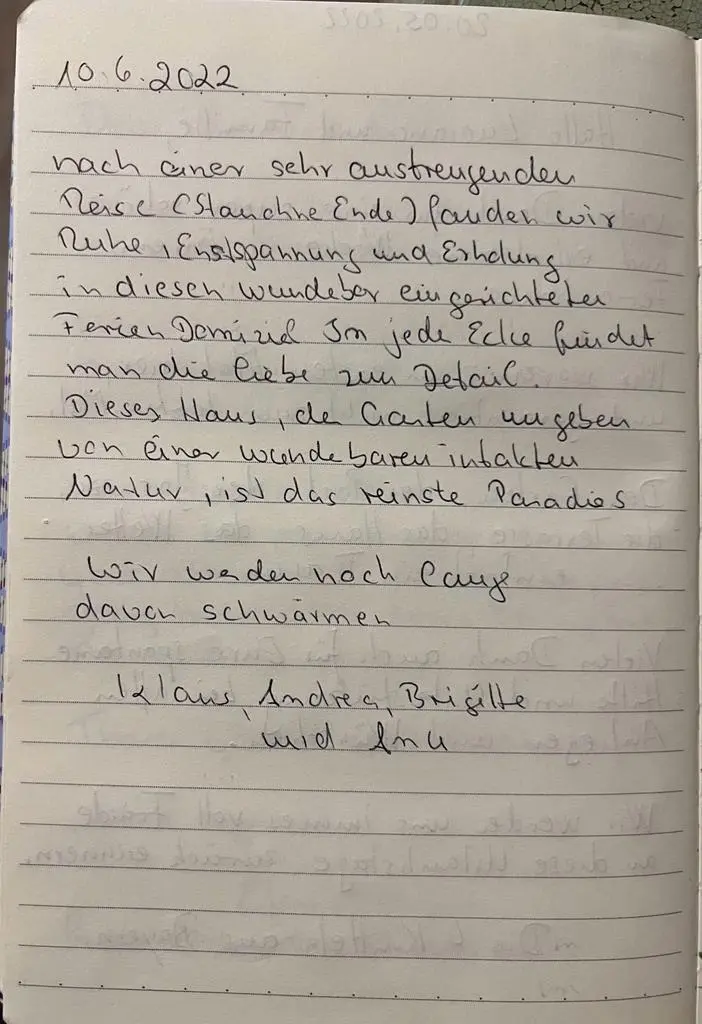 10.6.2022
nach einer sehr anstrengenden
Reise (Stau ohne Ende) fanden wir
Ruhe, Enstspannung und Erholung
in diesen wundeber eingerichteten
Ferien Domiziel In jede Ecke findet
man die liebe zum Detail.
Dieses Haus, der Garten umgeben
von einer wundebaren intakten
Natur, ist das reinste Paradies
Wir werden noch lange
davon schwärmen
Klaus, Andrea, Brigitte
und